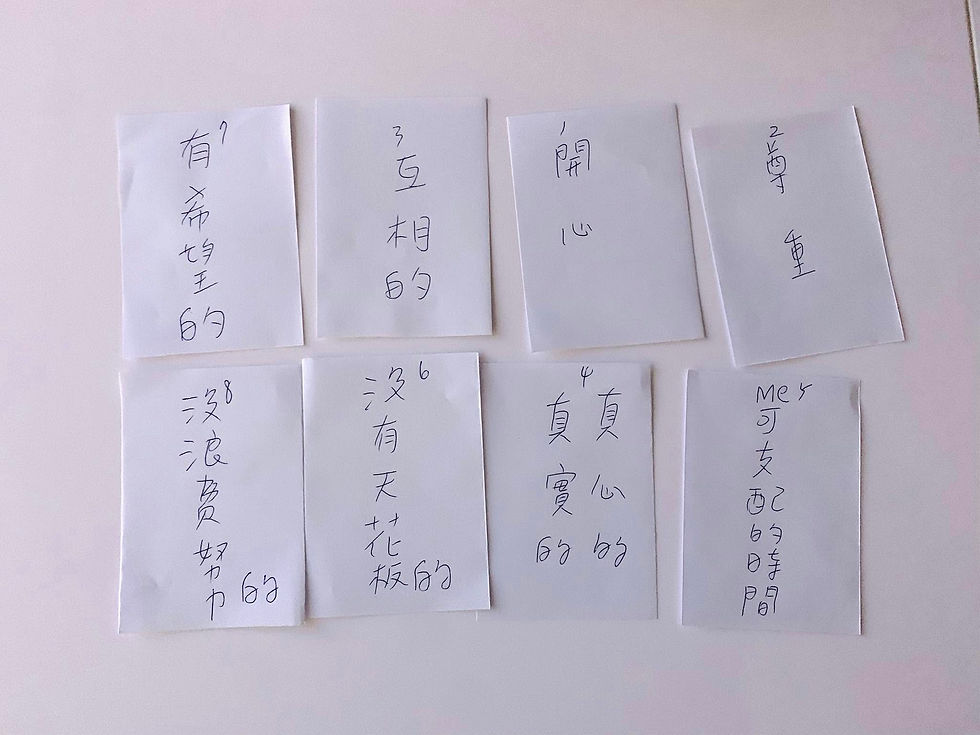 7
有希望的
3
互相的
1
開心
2
尊重
8
沒浪費努力的
6
沒有天花板的
4
真心的
真實的
Me 5
可支配的時間